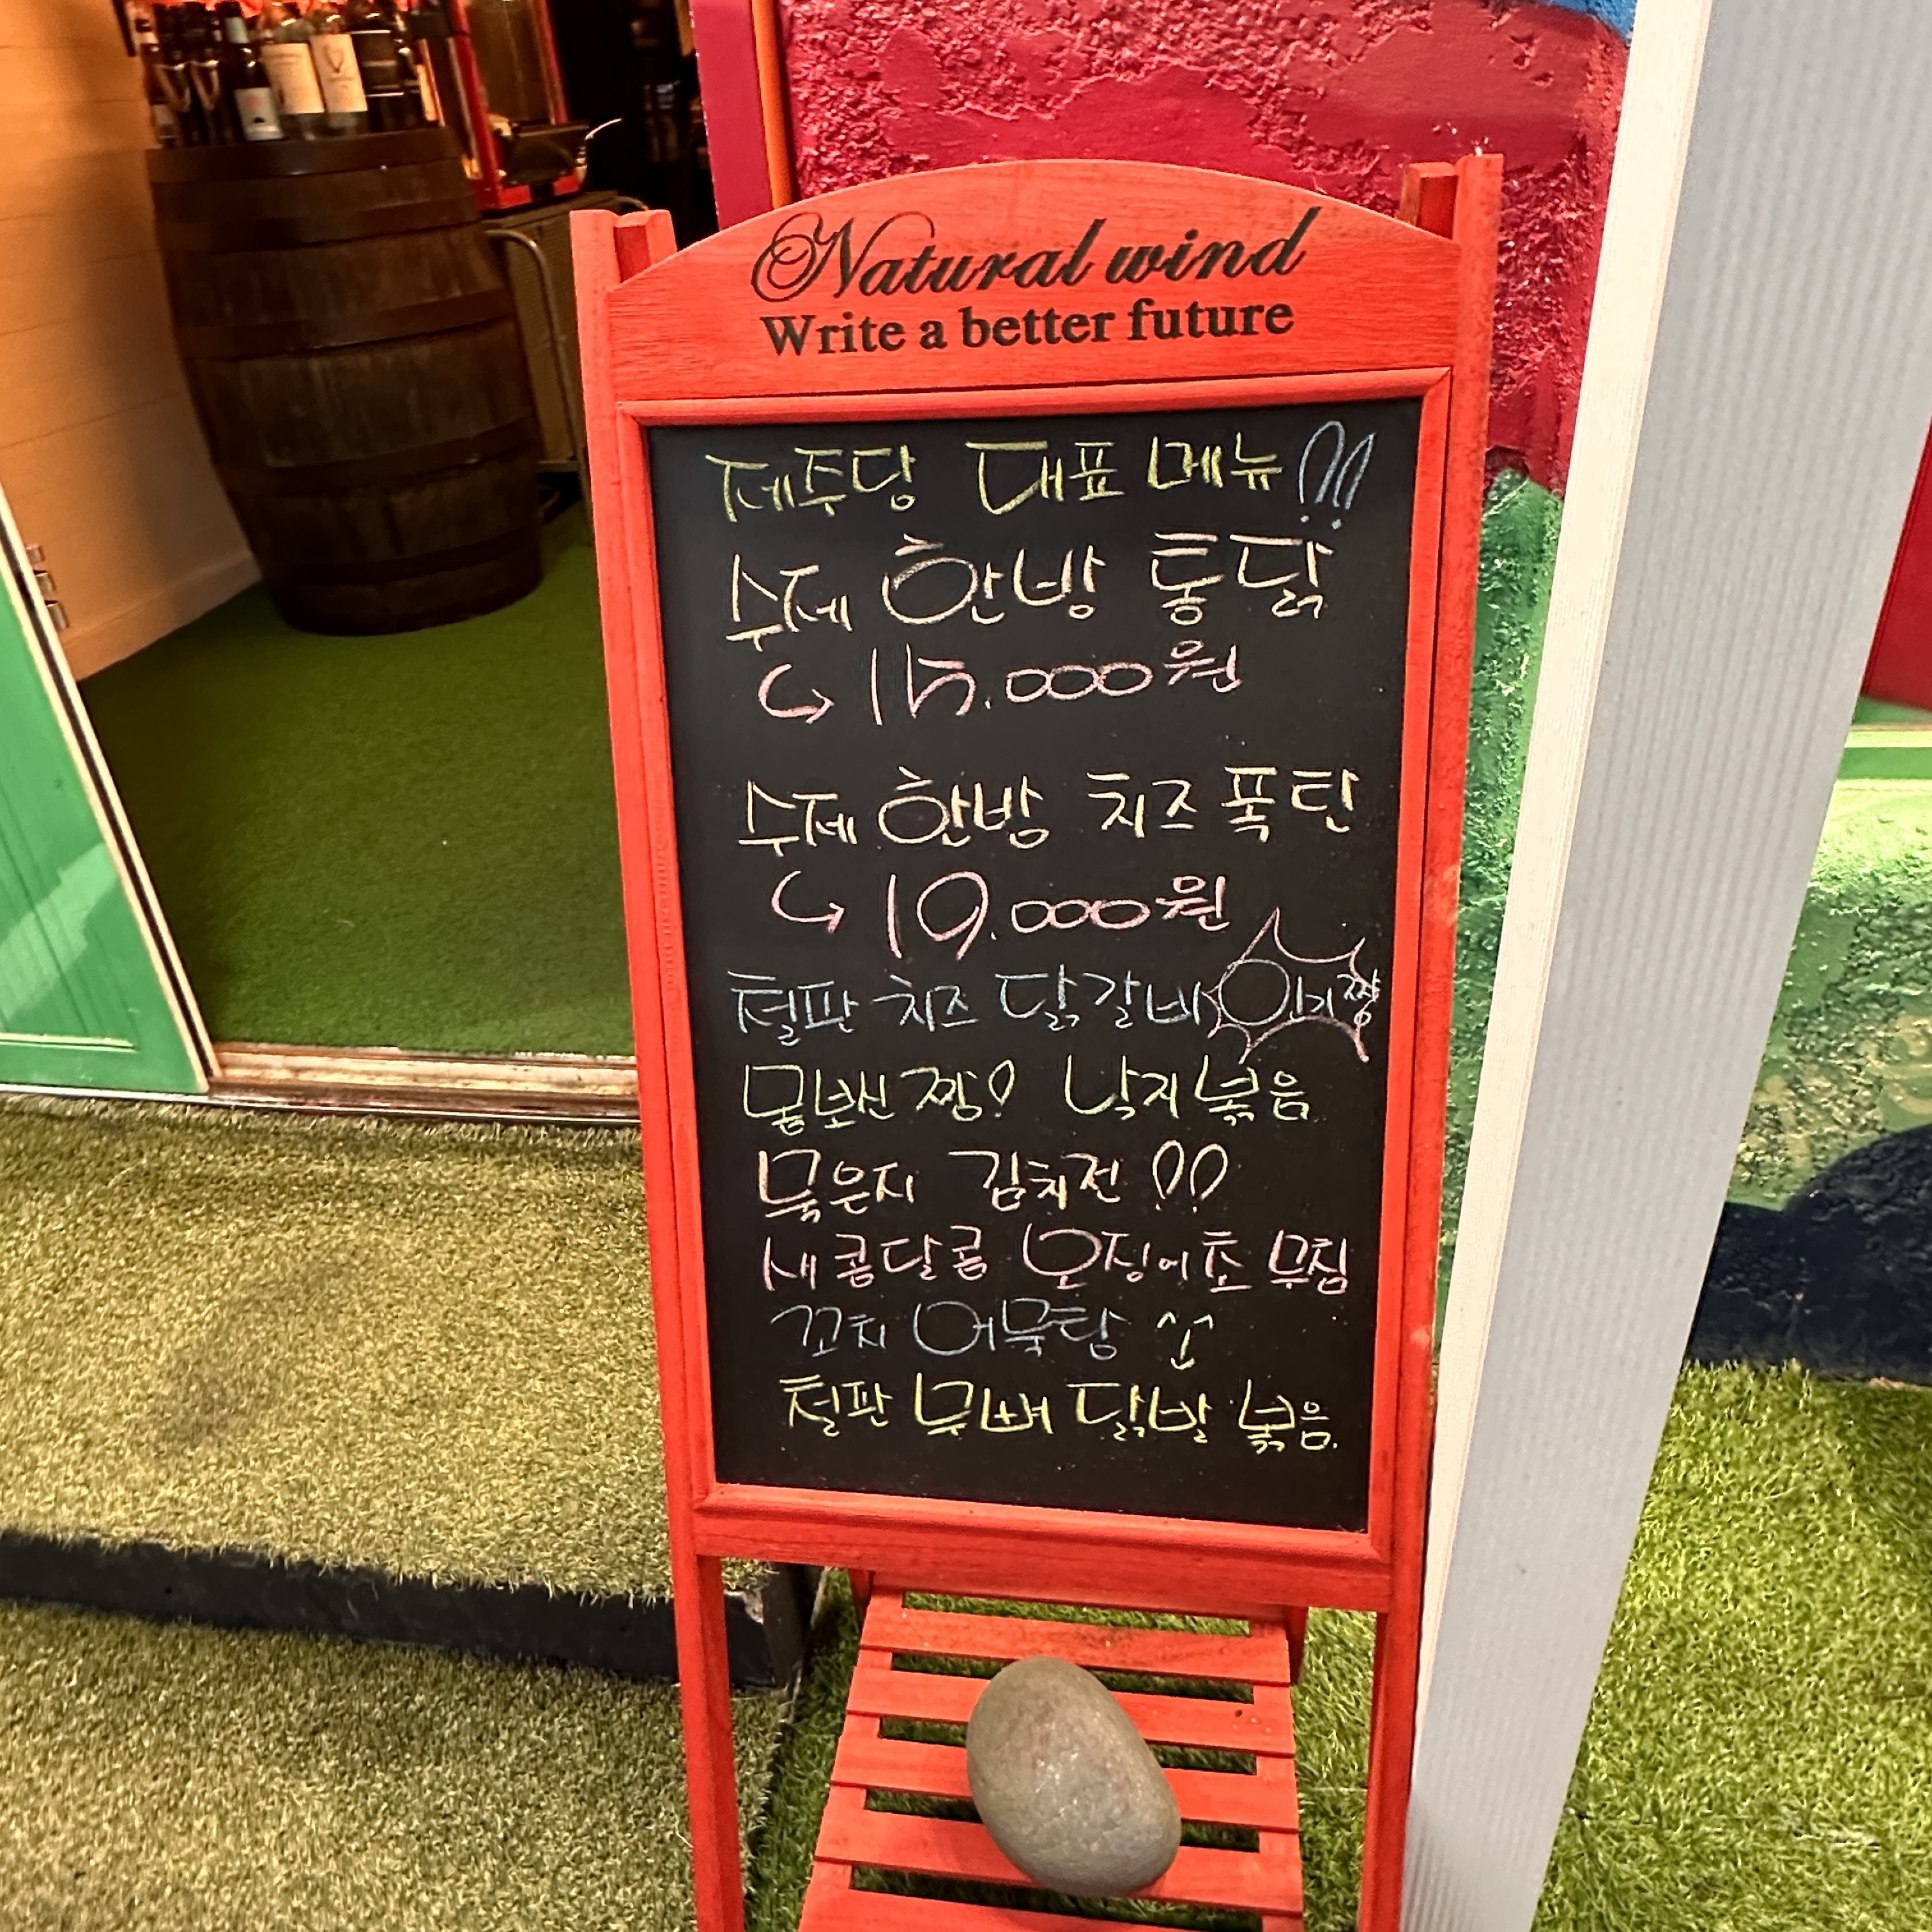 Natural wind
Write a better future
제주당 대표 메뉴!!
수제 한방 통닭
↳ 15.000원
수제 한방 치즈 폭탄
↳ 19.000원
철판 치즈 닭갈비 인기짱
몸보신 짱! 낙지볶음
묵은지 김치전!!
새콤달콤 오징어초무침
꼬치 어묵탕
철판 무뼈 닭발 볶음.